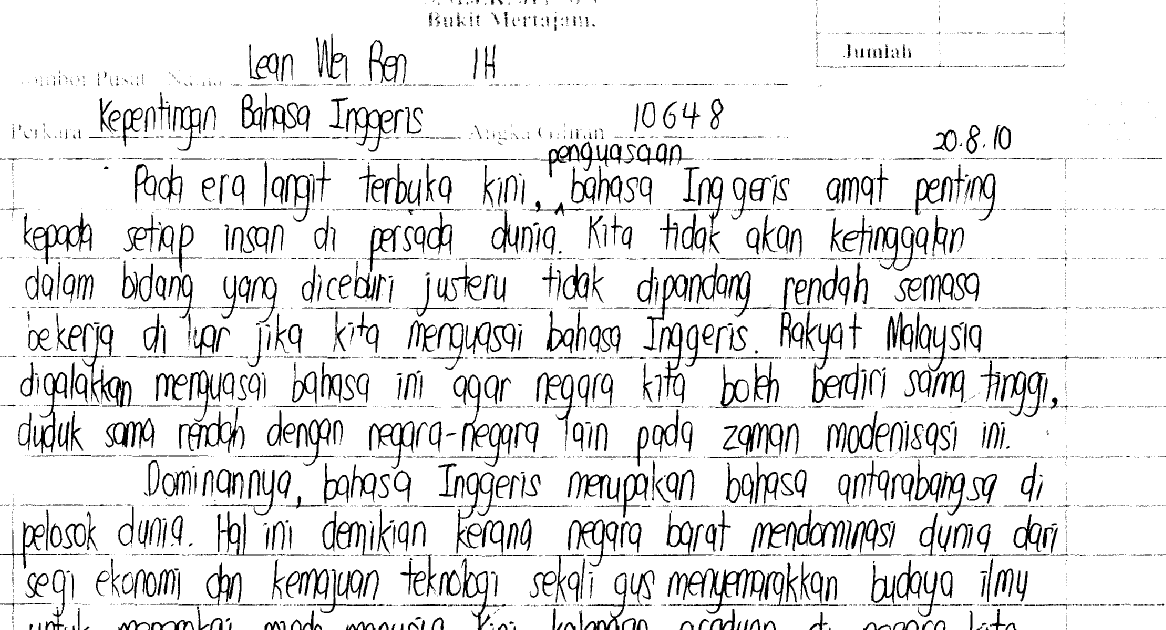 Bukit Mertajam.
Jumlah
Lean Wei Ren 1H
Perkara Kepentingan Bahasa Inggeris Angka Giliran 10648
20.8.10
penguasaan
Pada era langit terbuka kini, ^ bahasa Inggeris amat penting
kepada setiap insan di persada dunia. Kita tidak akan ketinggalan
dalam bidang yang diceburi justeru tidak dipandang rendah semasa
bekerja di luar jika kita menguasai bahasa Inggeris. Rakyat Malaysia
digalakkan menguasai bahasa ini agar negara kita boleh berdiri sama tinggi,
duduk sama rendah dengan negara-negara lain pada zaman modenisasi ini.
Dominannya, bahasa Inggeris merupakan bahasa antarabangsa di
pelosok dunia. Hal ini demikian kerana negara barat mendominasi dunia dari
segi ekonomi dan kemajuan teknologi sekali gus menyemarakkan budaya ilmu